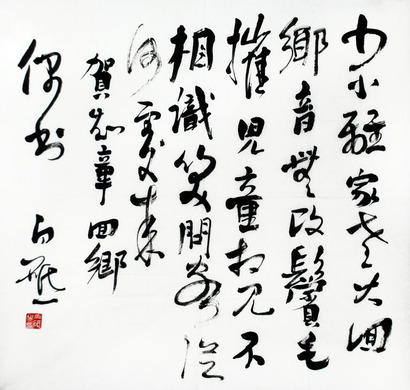 少小離家老大回
鄉音無改鬢毛
摧兒童相見不
相識笑問客從
何處來
賀知章回鄉
偶書
白